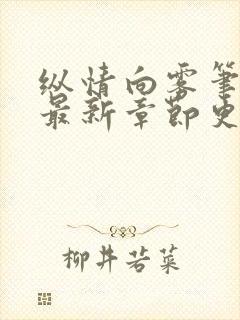 纵情向雾笔
最新章节史
柳井若菜